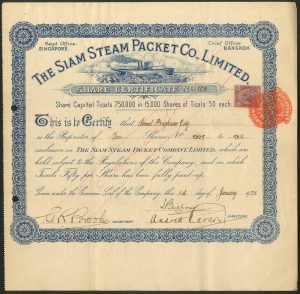 Head Office:
SINGAPORE
Chief Office:
BANGKOK.
THE SIAM STEAM PACKET CO. LIMITED.
SHARE CERTIFICATE No.
Share Capital Ticals 750,000 in 15,000 Shares of Ticals 50 each.
This is to Certify that Esq
is the Proprietor of Shares No. to
inclusive in THE SIAM STEAM PACKET COMPANY LIMITED, which are
held subject to the Regulations of the Company, and in which
Ticals Fifty per Share has been fully paid up.
Given under the Common Seal of the Company this day of January
SECRETARY
DIRECTORS